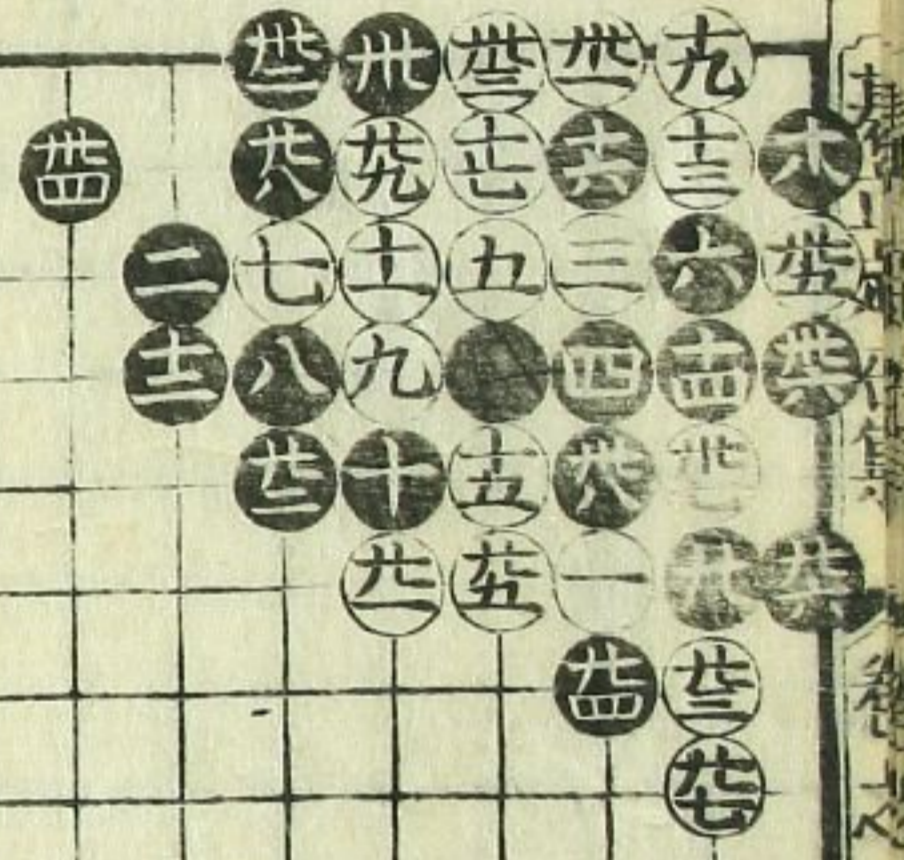 卅二 卅 卅三 卅一 十九
卅四 廿八 廿九 十七 十六 十三 十八
二 七 十一 五 三 六 卅五
十二 八 九 四 十四 卅六
廿二 十 十五 卅八 卅七
廿一 廿五 一 廿 廿六
廿四 廿三
廿七